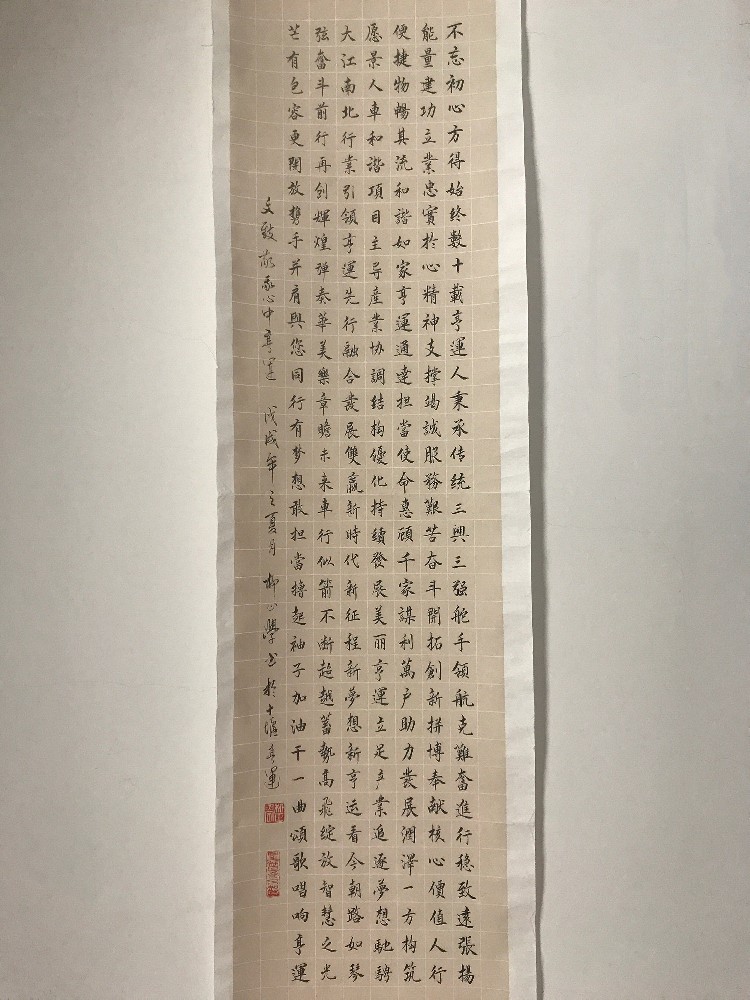 不忘初心方得始终数十載亨運人秉承传统三興三强舵手领航克難奮進行稳致遠張揚
能量建功立業忠實於心精神支撑竭誠服務艱苦奋斗開拓創新拼博奉献核心價值人行
便捷物暢其流和諧如家亨運通達担當使命惠顧千家謀利萬户助力发展潤澤一方构筑
愿景人車和諧項目主导產業协調结构優化持續發展美丽亨運立足产業追逐夢想馳骋
大江南北行業引领亨運先行融合发展雙赢新時代新征程新夢想新亨运看今朝路如琴
弦奮斗前行再创輝煌弹奏華美樂章瞻未来車行似箭不断超越蓄勢高飛绽放智慧之光
芒有包容更開放携手并肩與您同行有梦想敢担當撸起袖子加油干一曲頌歌唱响亨運
文致敬我心中亨運 戊戌年之夏月 學书於十堰亨運